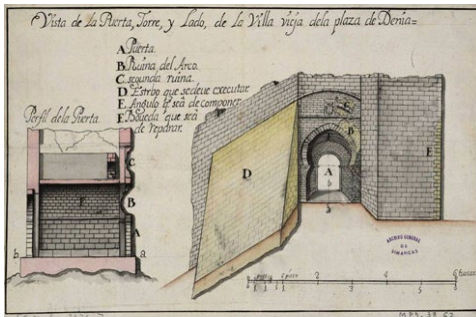 Vista de la Puerta, Torre, y Lado, de la Villa vieja dela plaza de Denia=
A Puerta.
B Ruina del Arco.
C segunda ruina.
D Estrop que sedeve executar
E Angulo q̃ sea de componer
F Boueda que sea
de reparar.
Perfil de la Puerta.
C
F
B
A
b
a
D
C
B
A
b
a
E
ARCHIVO GENERAL
DE
SIMANCAS
1
2
3
4
5
6